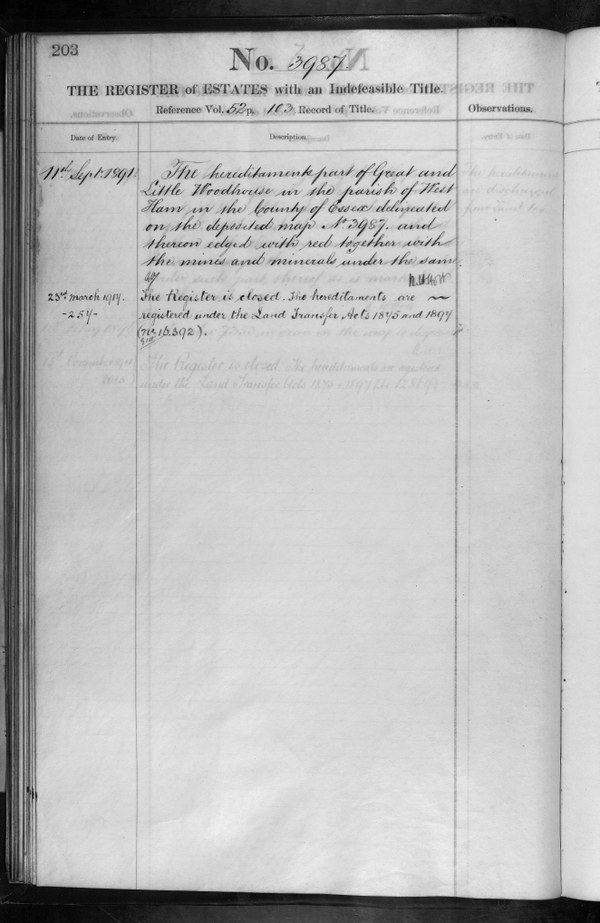 203
No. 3987.
THE REGISTER of ESTATES with an Indefeasible Title.
Reference Vol. 52 p. 103 Record of Title.
Observations.
Date of Entry.
Description.
11th Sept: 1891.
The hereditaments part of Great and
Little Woodhouse in the parish of West
Ham in the County of Essex delineated
on the deposited map No. 3987. and
thereon edged with red together with
the mines and minerals under the same
23rd March 1917.
-257-
The Register is closed. The hereditaments are
registered under the Land Transfer Acts 1875 and 1897
(No. 16,392).
The Register is closed The hereditaments are registered
under the Land Transfer Acts 1875